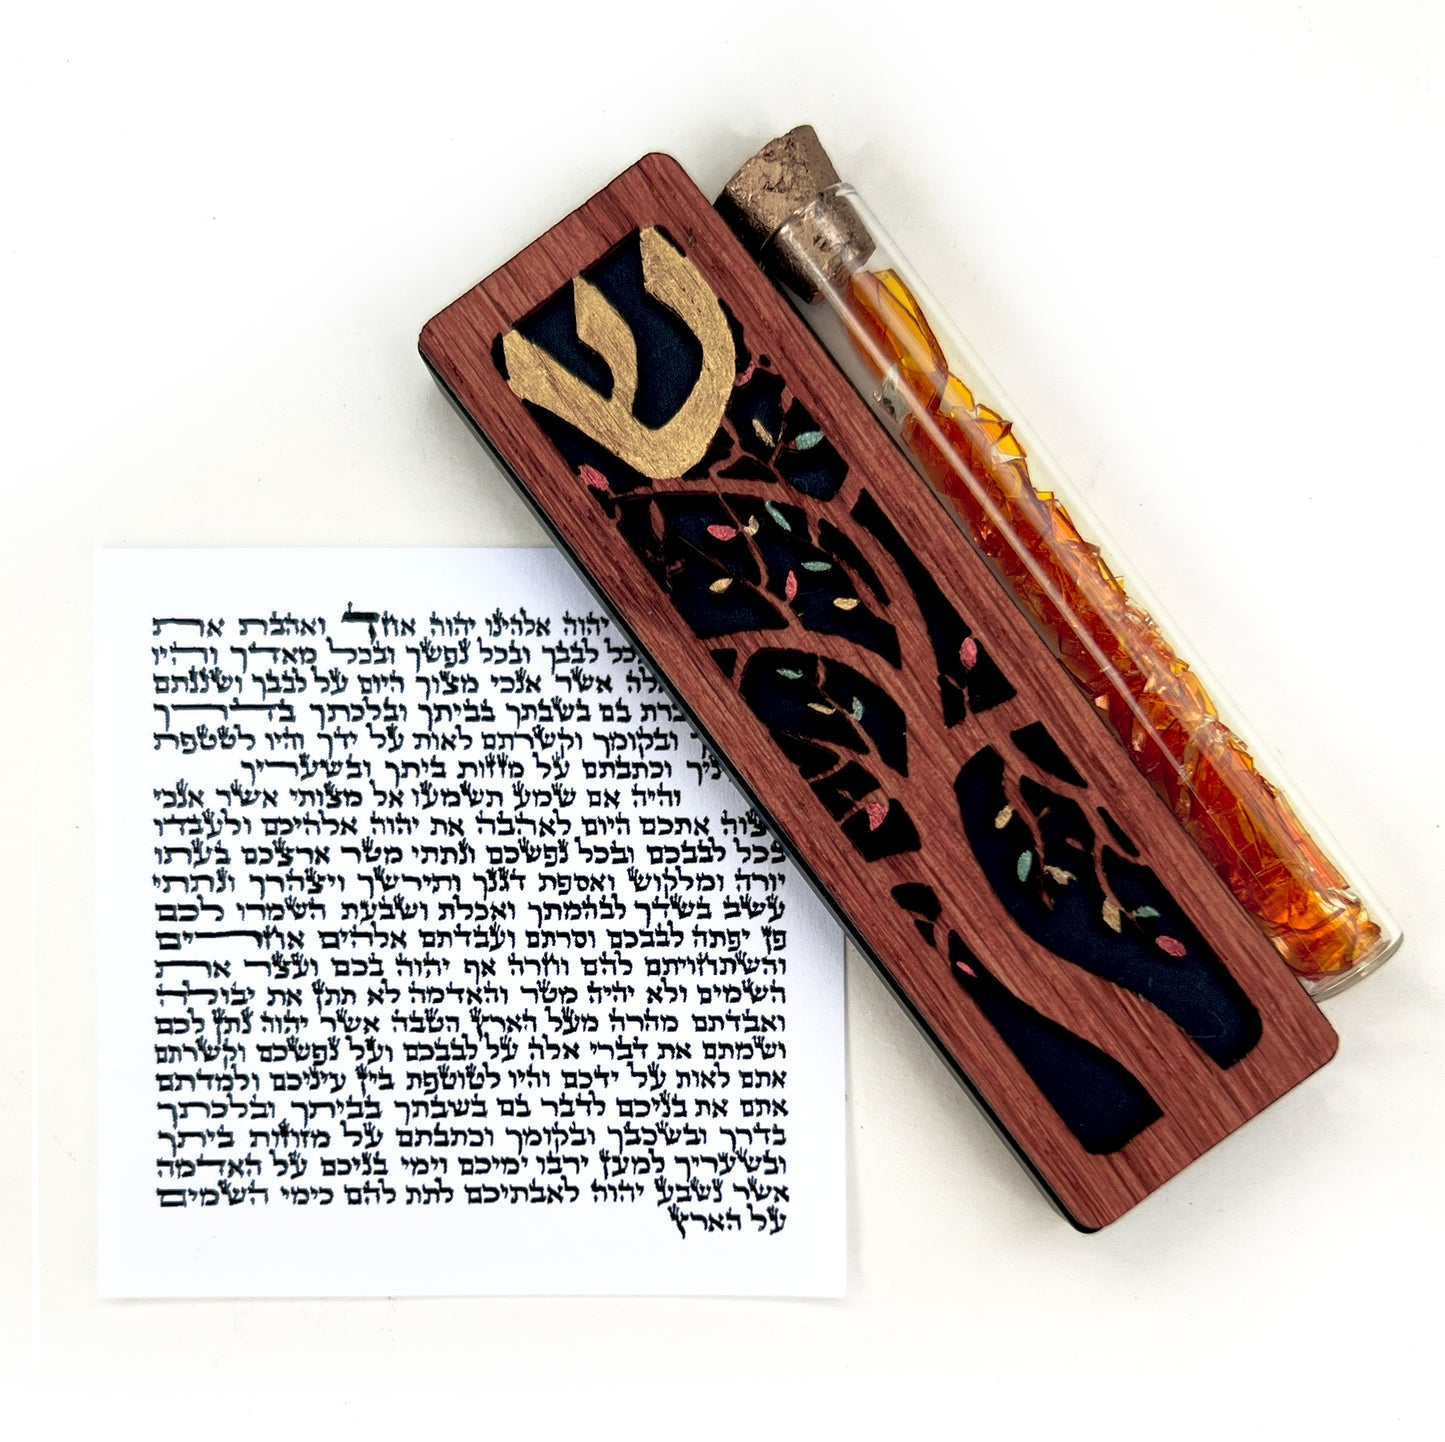 ש
יהוה אלהינו יהוה אחד ואהבת את
לבבך ובכל נפשך ובכל מאדך והיו
אשר אנכי מצוך היום על לבבך ושננתם
בם בשבתך בביתך ובלכתך בדרך
ובקומך וקשרתם לאות על ידך והיו לטטפת
וכתבתם על מזזות ביתך ובשעריך
והיה אם שמע תשמעו אל מצותי אשר אנכי
מצוה אתכם היום לאהבה את יהוה אלהיכם ולעבדו
בכל לבבכם ובכל נפשכם ונתתי מטר ארצכם בעתו
יורה ומלקוש ואספת דגנך ותירשך ויצהרך ונתתי
עשב בשדך לבהמתך ואכלת ושבעת השמרו לכם
פן יפתה לבבכם וסרתם ועבדתם אלהים אחרים
והשתחויתם להם וחרה אף יהוה בכם ועצר את
השמים ולא יהיה מטר והאדמה לא תתן את יבולה
ואבדתם מהרה מעל הארץ הטבה אשר יהוה נתן לכם
ושמתם את דברי אלה על לבבכם ועל נפשכם וקשרתם
אתם לאות על ידכם והיו לטוטפת בין עיניכם ולמדתם
אתם את בניכם לדבר בם בשבתך בביתך ובלכתך
בדרך ובשכבך ובקומך וכתבתם על מזוזות ביתך
ובשעריך למען ירבו ימיכם וימי בניכם על האדמה
אשר נשבע יהוה לאבתיכם לתת להם כימי השמים
על הארץ